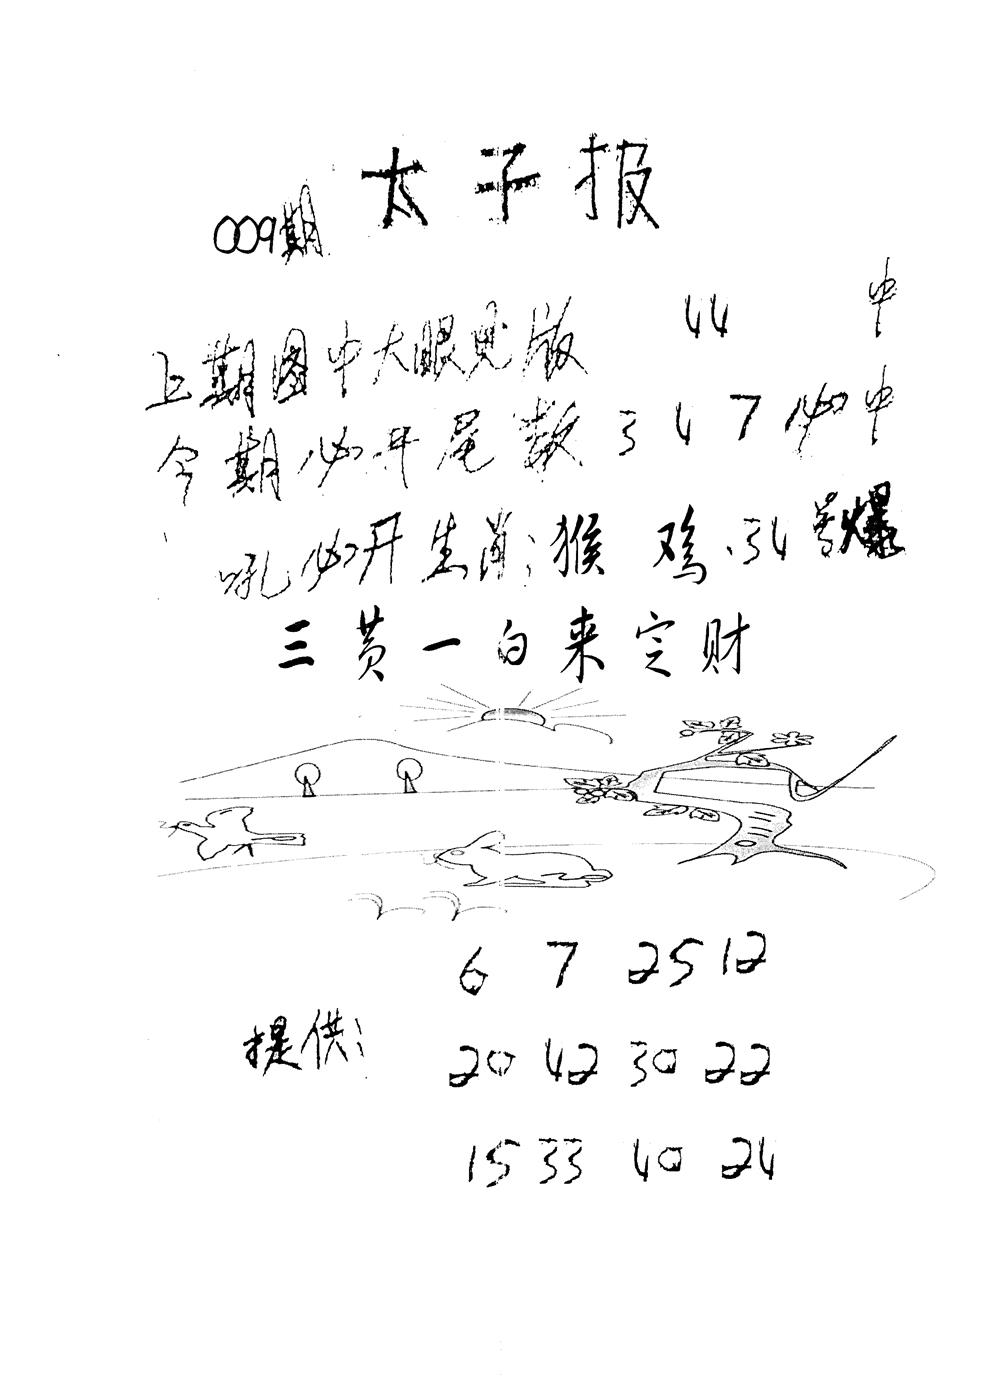 太子报
009期
上期图中大眼见版 44 中
今期必开尾数 3 4 7 必中
吼必开生肖:猴 鸡.34号爆
三黄一白来定财
6 7 25 12
提供:
20 42 30 22
15 33 40 24